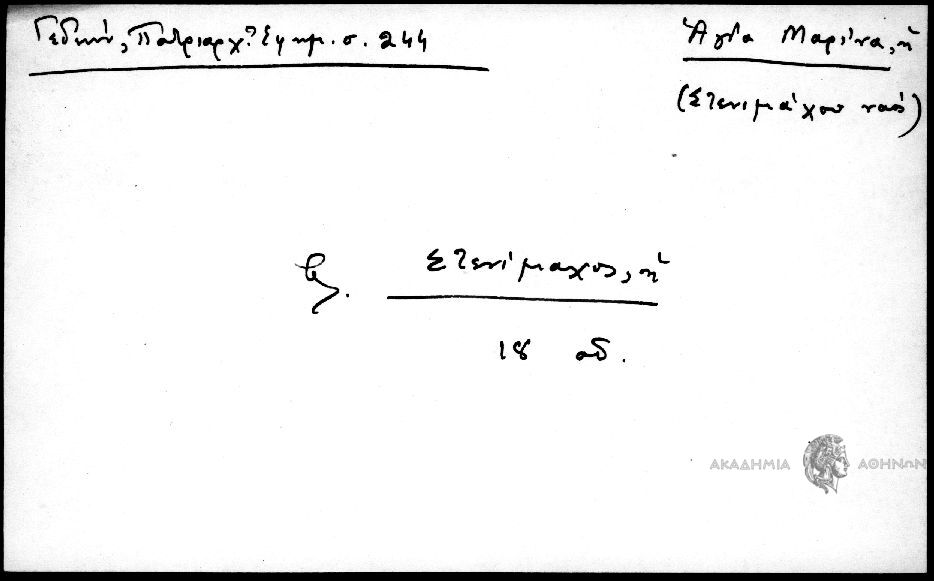 Γεδεών, Πατριαρχ. Ἐφημ. σ. 244
Ἁγία Μαρίνα, ἡ
(Στενιμάχου ναός)
Στενίμαχος, ἡ
18 αἰ.
ΑΚΑΔΗΜΙΑ ΑΘΗΝΩΝ